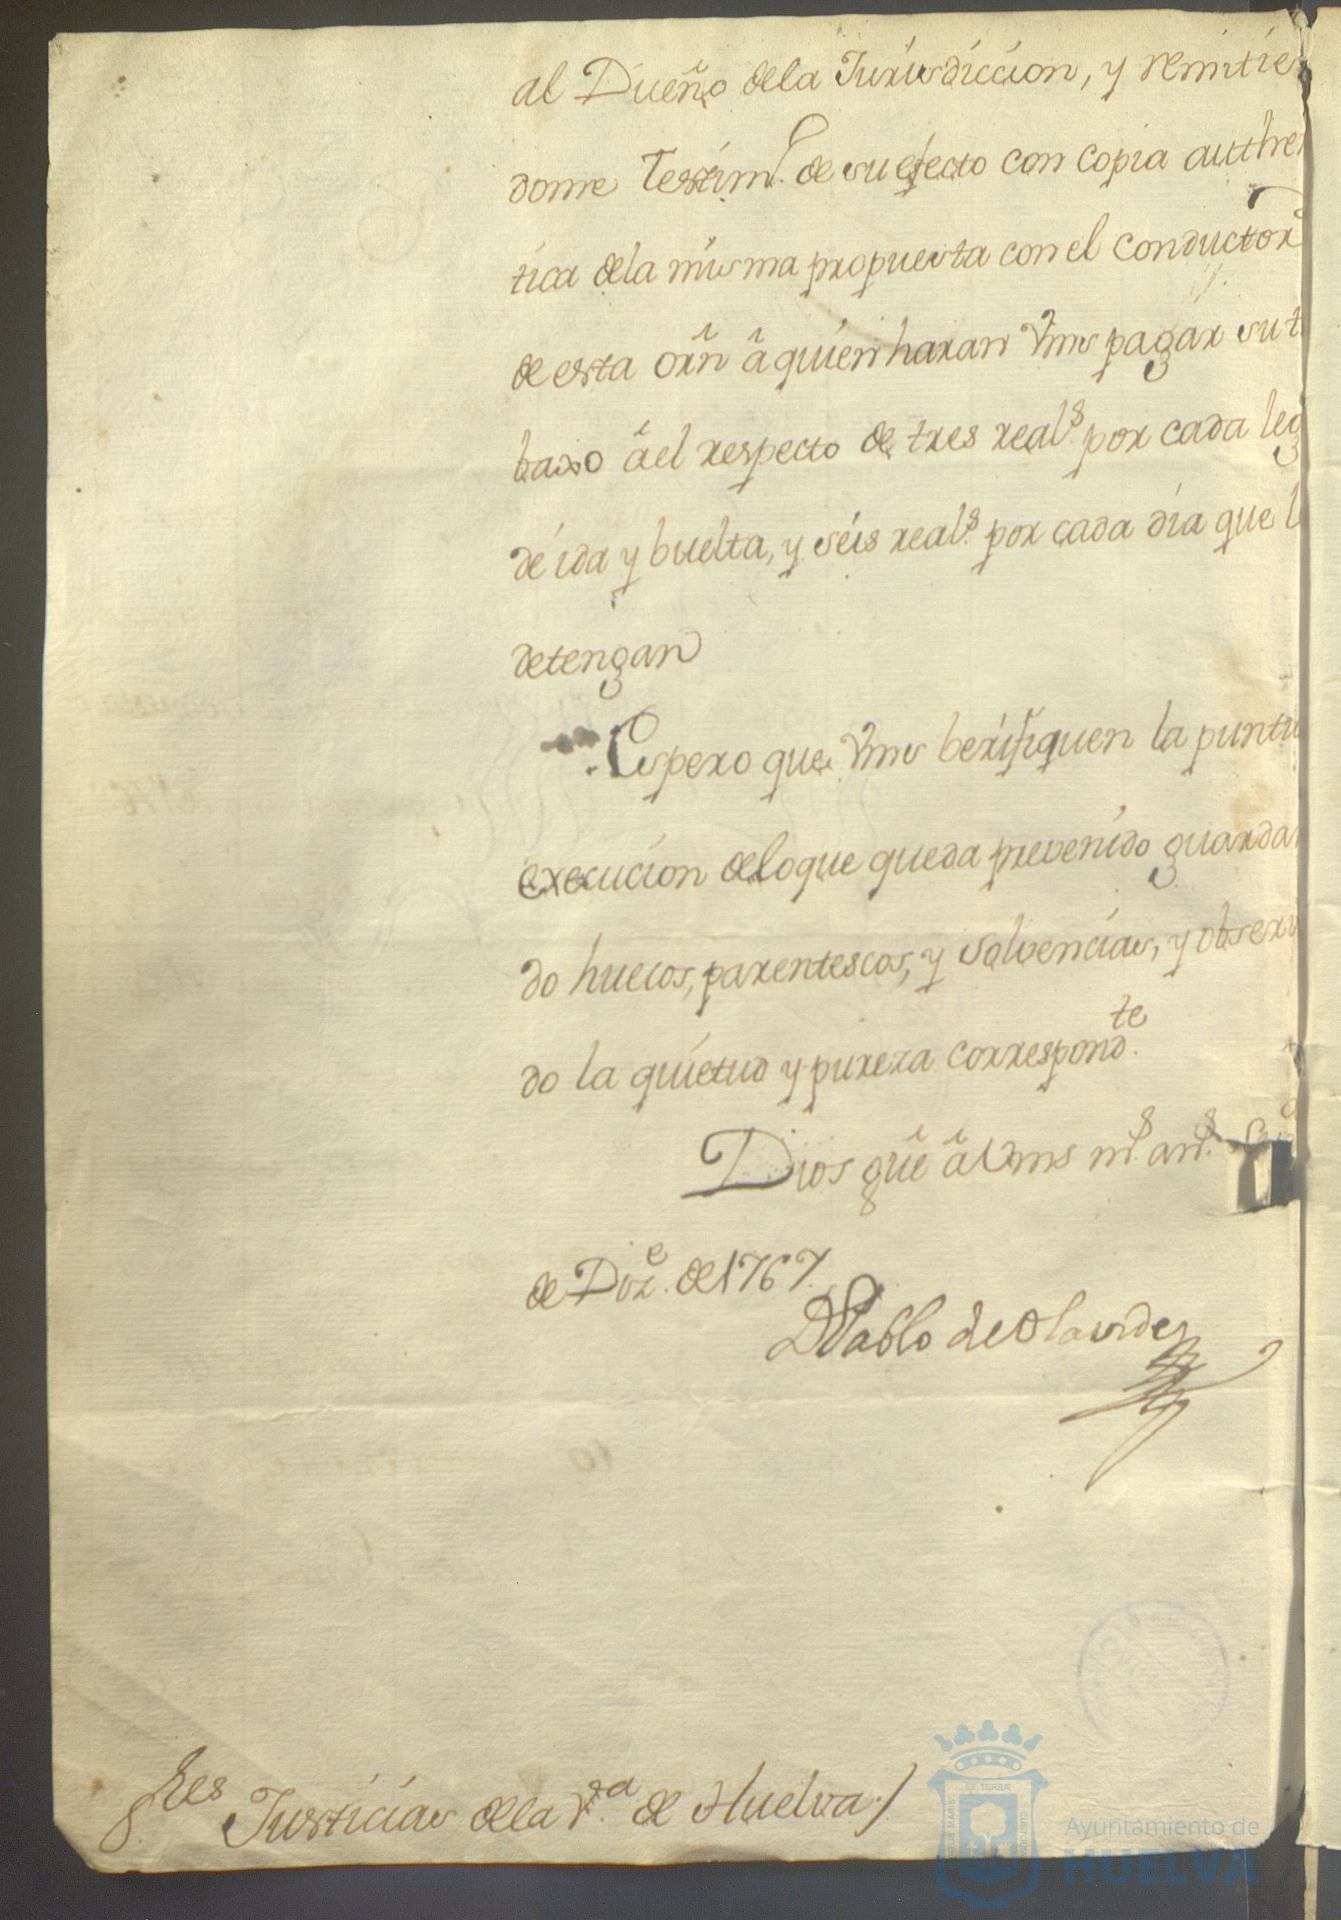 al Dueño dela Jurisdiccion, y remitie
dome Testim.º de su efecto con copia authen
tica dela misma propuesta con el conductor
de esta orñ â quien haran Vms pagar su t
baxo âel respecto de tres real.s por cada leg
dé ida y buelta, y séis real.s por cada dia que l
detengan
Espero que Vms berifiquen la puntu
execucion delo que queda prevenido guardan
do huecos, parentescos, y solvencias, y observ
do la quietud y pureza correspond.te
Dios güe â Vms m.s añ.s
de Dize. de 1767.
Dn Pablo de Olavide
Sres Justicias dela V.a de Huelva./
Ayuntamiento de
HUELVA